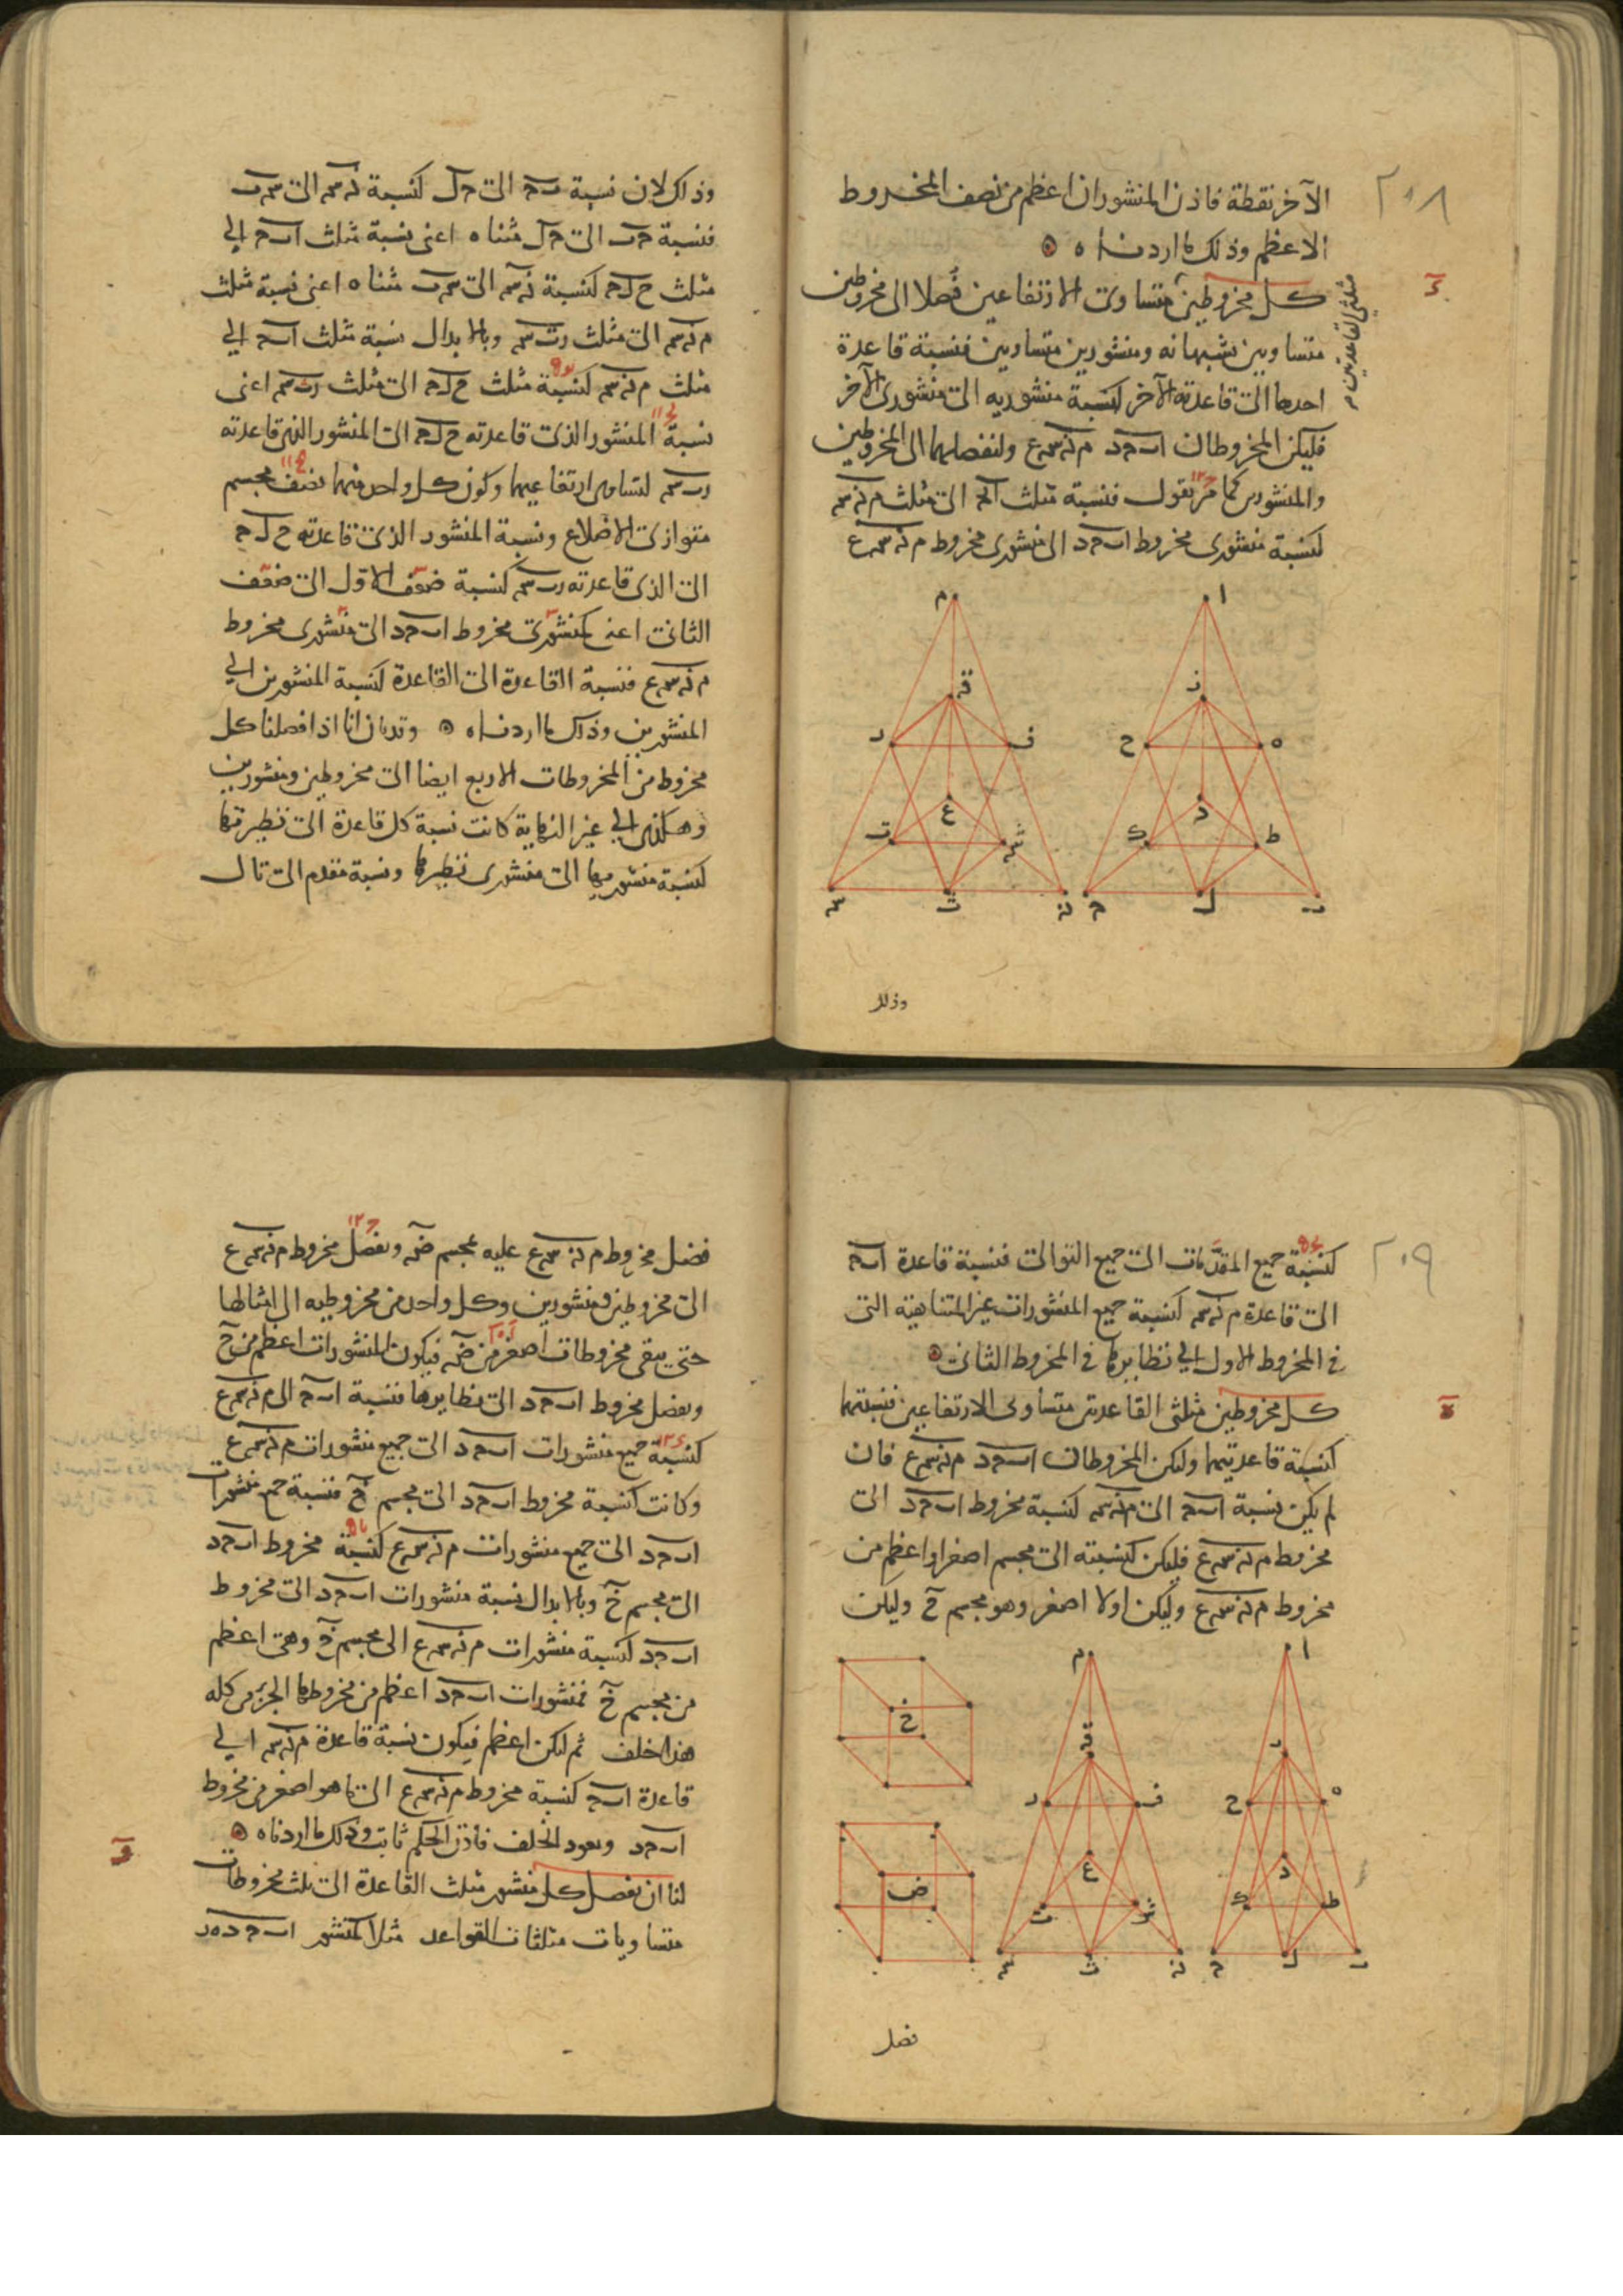 ٢٠٨
الآخر نقطة فاذن المنشوران اعظم من نصف المخروط
الاعظم وذلك ما اردناه
كل مخروطين متساوى الارتفاعين فُصلا الى مخروطين
مثلثى القاعدتين
متساويين يشبهانه ومنشورين متساويين فنسبة قاعدة
احدهما الى قاعدة الآخر كنسبة منشوريه الى منشورى الآخر
فليكن المخروطان ا ب ج د م ن س ع ولنفصلهما الى المخروطين
والمنشورين كما مرّ نقول فنسبة مثلث ا ب ج الى مثلث م ن س
كنسبة منشورى مخروط ا ب ج د الى منشورى مخروط م ن س ع
ا م
ز ق
ه ح ف ر
د ع
ط ك ش ت
ب ل ج ن ث س
وذلك
وذلك لان نسبة ب ج الى ج ل كنسبة ن س الى س ث
فنسبة ج ب الى ج ل مثناه اعنى نسبة مثلث ا ب ج الى
مثلث ح ل ج كنسبة ن س الى س ث مثناه اعنى نسبة مثلث
م ن س الى مثلث ر ث س وبالابدال نسبة مثلث ا ب ج الى
مثلث م ن س كنسبة مثلث ح ل ج الى مثلث ر ث س اعنى
نسبة المنشور الذى قاعدته ح ل ج الى المنشور الذى قاعدته
ر ث س لتساوى ارتفاعيهما وكون كل واحد منهما نصف مجسم
متوازى الاضلاع ونسبة المنشور الذى قاعدته ح ل ج
الى الذى قاعدته ر ث س كنسبة ضعف الاول الى ضعف
الثانى اعنى كمنشورى مخروط ا ب ج د الى منشورى مخروط
م ن س ع فنسبة القاعدة الى القاعدة كنسبة المنشورين الى
المنشورين وذلك ما اردناه وقد بان انا اذا فصلنا كل
مخروط من المخروطات الاربع ايضا الى مخروطين ومنشورين
وهكذى الى غير النهاية كانت نسبة كل قاعدة الى نظيرتها
كنسبة منشوريها الى منشورى نظيرها ونسبة مقدم الى تال
٢٠٩
كنسبة جميع المقدّمات الى جميع التوالى فنسبة قاعدة ا ب ج
الى قاعدة م ن س كنسبة جميع المنشورات غير المتناهية التى
فى المخروط الاول الى نظايرها فى المخروط الثانى
كل مخروطين مثلثى القاعدتين متساوى الارتفاعين فنسبتهما
كنسبة قاعدتيهما وليكن المخروطان ا ب ج د م ن س ع فان
لم يكن نسبة ا ب ج الى م ن س كنسبة مخروط ا ب ج د الى
مخروط م ن س ع فليكن كنسبته الى مجسم اصغر او اعظم من
مخروط م ن س ع وليكن اولا اصغر وهو مجسم خ وليكن
ا م
خ
ز ق
ه ح ف ر
د ع
ض
ط ك ش ت
ب ل ج ن ث س
فضل
فضل مخروط م ن س ع عليه مجسم ض ونفصل مخروط م ن س ع
الى مخروطين ومنشورين وكل واحد من مخروطيه الى امثالها
حتى يبقى مخروطات اصغر من ض فيكون المنشورات اعظم من خ
ونفصل مخروط ا ب ج د الى نظايرها فنسبة ا ب ج الى م ن س ع
كنسبة جميع منشورات ا ب ج د الى جميع منشورات م ن س ع
وكانت كنسبة مخروط ا ب ج د الى مجسم خ فنسبة جميع منشورات
ا ب ج د الى جميع منشورات م ن س ع كنسبة مخروط ا ب ج د
الى مجسم خ وبالابدال نسبة منشورات ا ب ج د الى مخروط
ا ب ج د كنسبة منشورات م ن س ع الى مجسم خ وهى اعظم
من مجسم خ فمنشورات ا ب ج د اعظم من مخروطها الجزء من كله
هذا خلف ثم ليكن اعظم فيكون نسبة قاعدة م ن س الى
قاعدة ا ب ج كنسبة مخروط م ن س ع الى ما هو اصغر من مخروط
ا ب ج د ويعود الخلف فاذن الحكم ثابت وذلك ما اردناه
لنا ان نفصل كل منشور مثلث القاعدة الى ثلث مخروطات
متساويات مثلثات القواعد مثلا كمنشور ا ب ج د ه ر